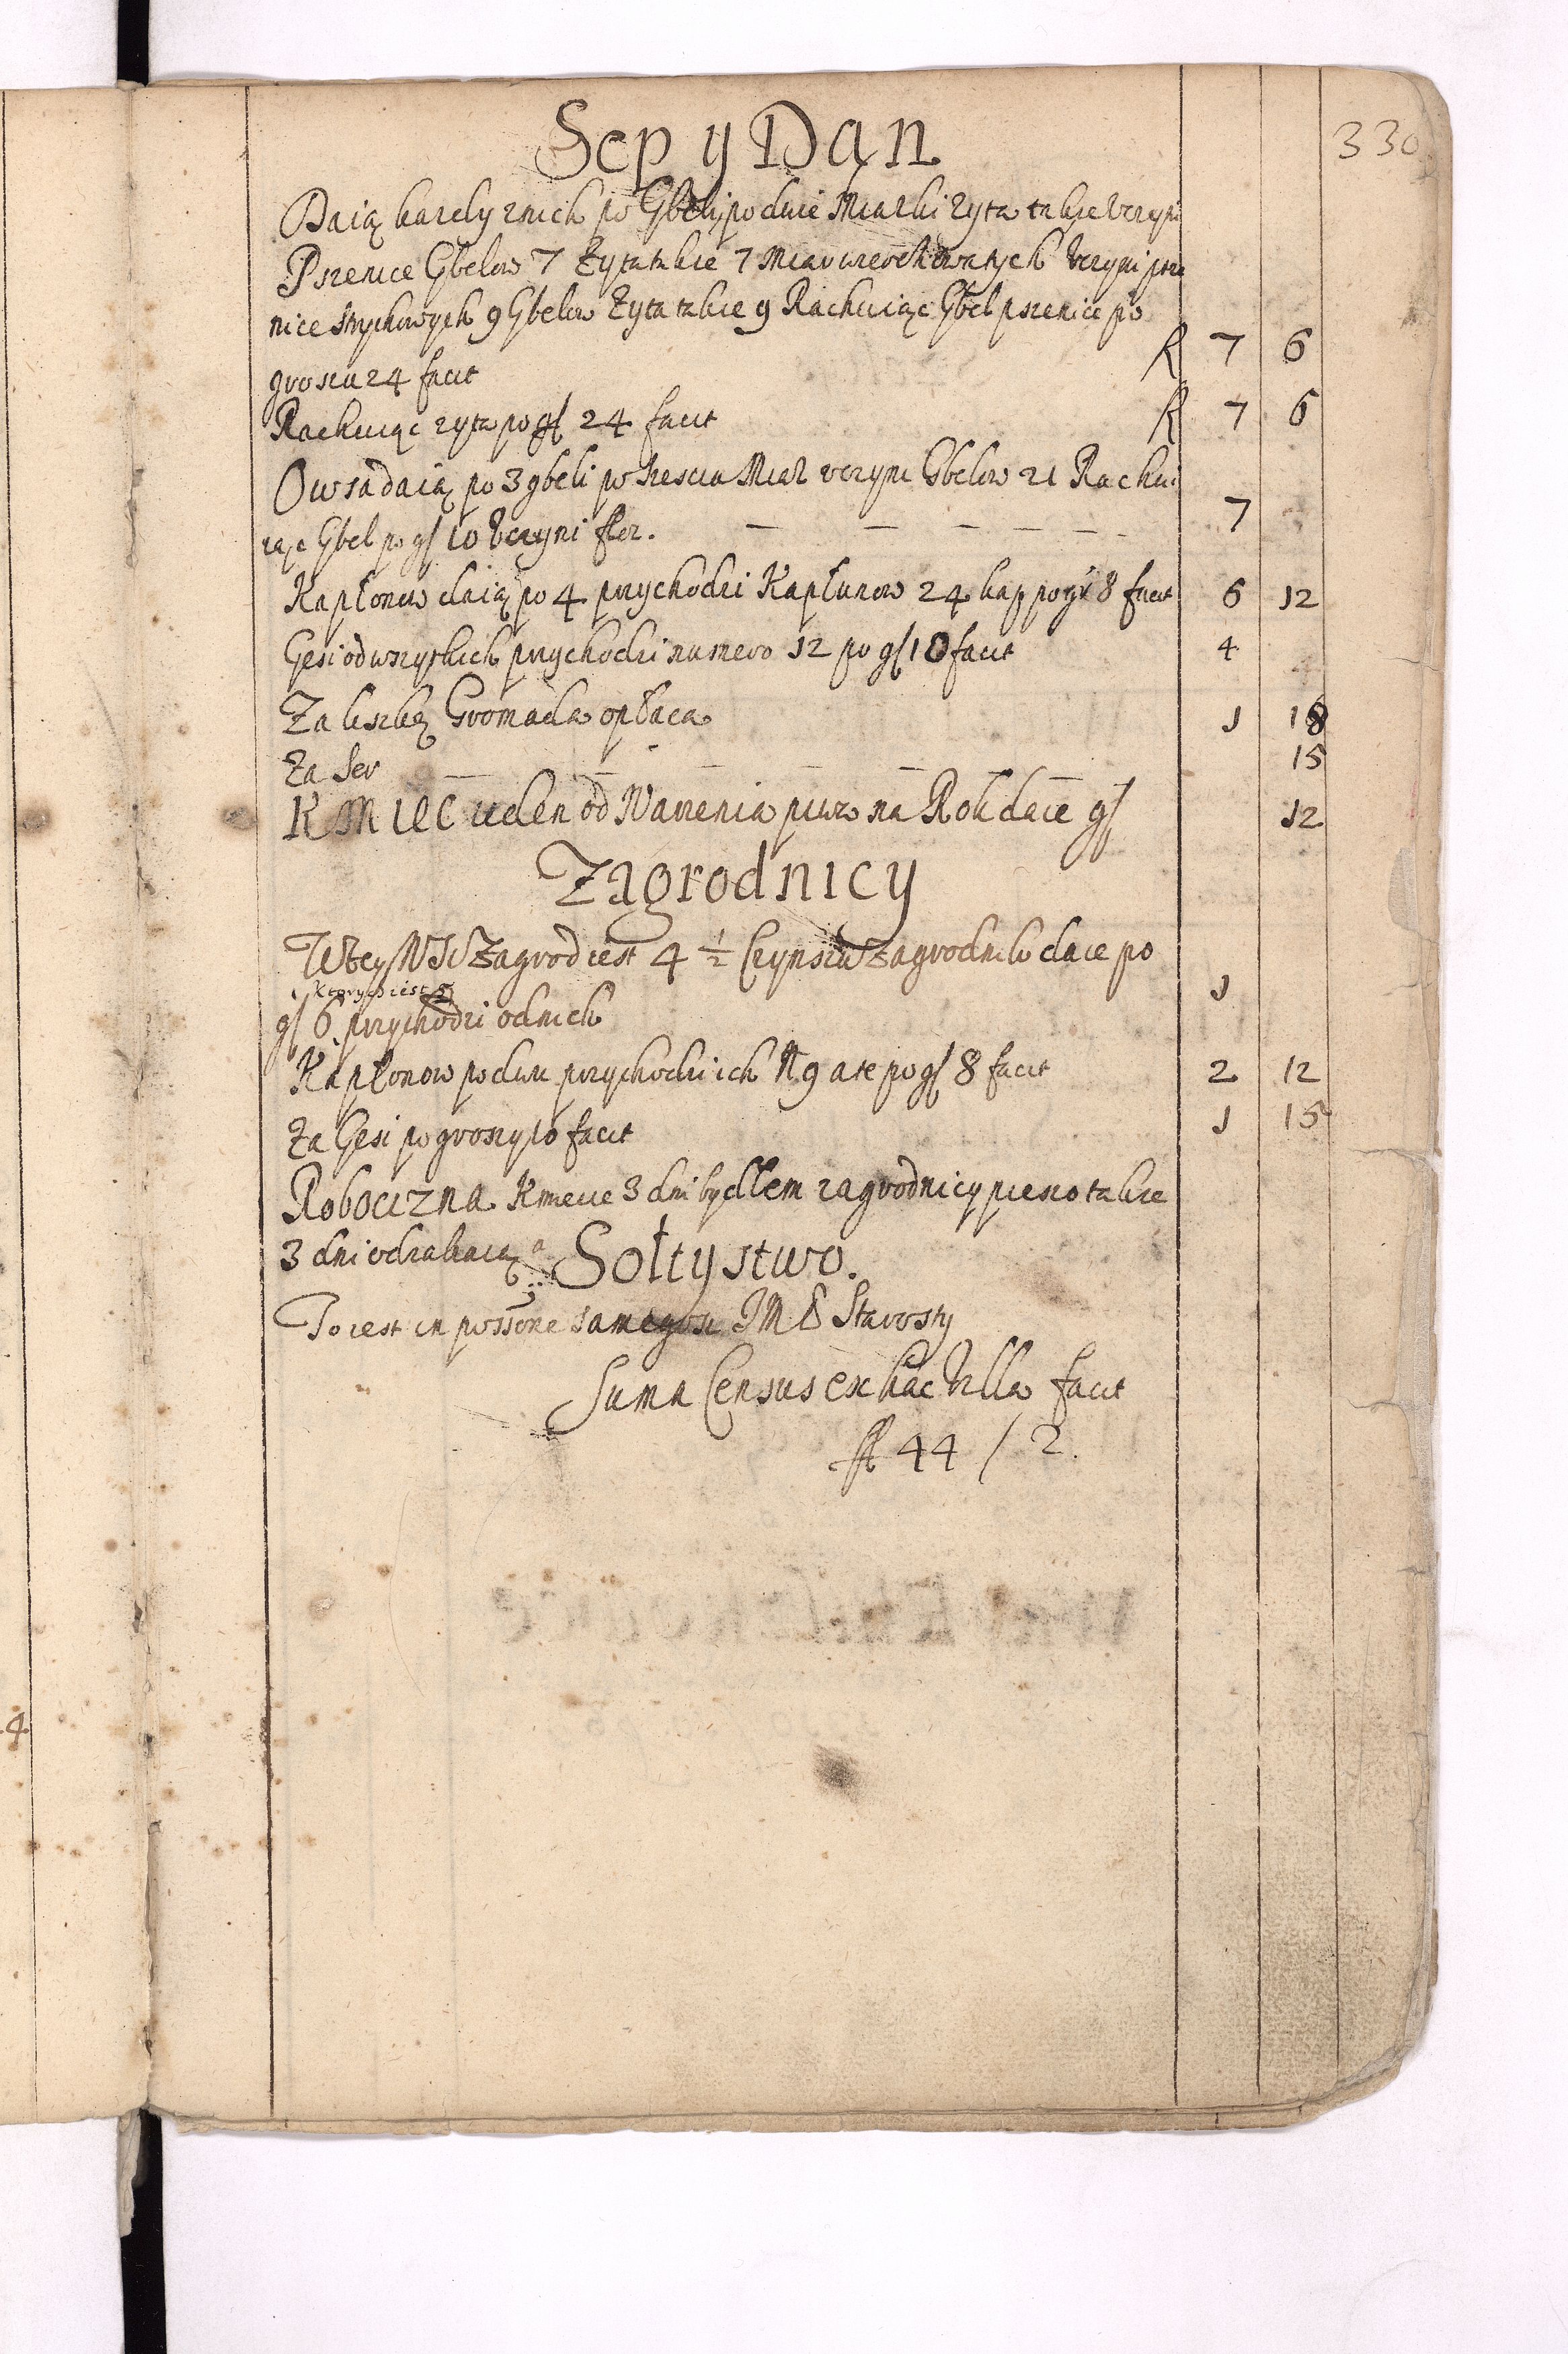 330
Sep y Dan
Daią kazdy znich po Gbely po dwie Miarki zyta takze vczyni
Pszenice Gbelow 7 Zyta takze 7 Miar wierzchowatych vczyni psze
nice strychowych 9 Gbelow Zyta takze 9 Rachuiąc Gbel pszenice po
groszu 24 facit R 7 6
Rachuiąc zyta po gs 24 facit R 7 6
Owsa daią po 3 gbeli po szesciu Miar vczyni Gbelow 21 Rachu
iąc Gbel po gs 10 vczyni fler. 7
Kapłonow daią po 4 przychodzi Kapłunow 24 kap po gr 8 facit 6 12
Gesi od wszytkich przychodzi numero 12 po gs 10 facit 4
Za liszbę Gromada opłaca 1 18
Za Ser 15
KMIEC ieden od Warzenia piwa na Rok daie gs 12
Zagrodnicy
W tey WSi Zagrod iest 4 1/2 Czynszu Zagrodnik daie po
ktorych iest 5
gs 6 przychodzi od nich 1
Kapłonow po dwu przychodzi ich N 9 a te po gs 8 facit 2 12
Za Gesi po groszy 10 facit 1 15
Robocizna Kmiecie 3 dni bydłem zagrodnicy pieszo takze
3 dni odrabiaią
Sołtystwo.
To iest in possone samegosz JM P Starosty
Suma Census ex hac Villa facit
fl 44 / 2.
4